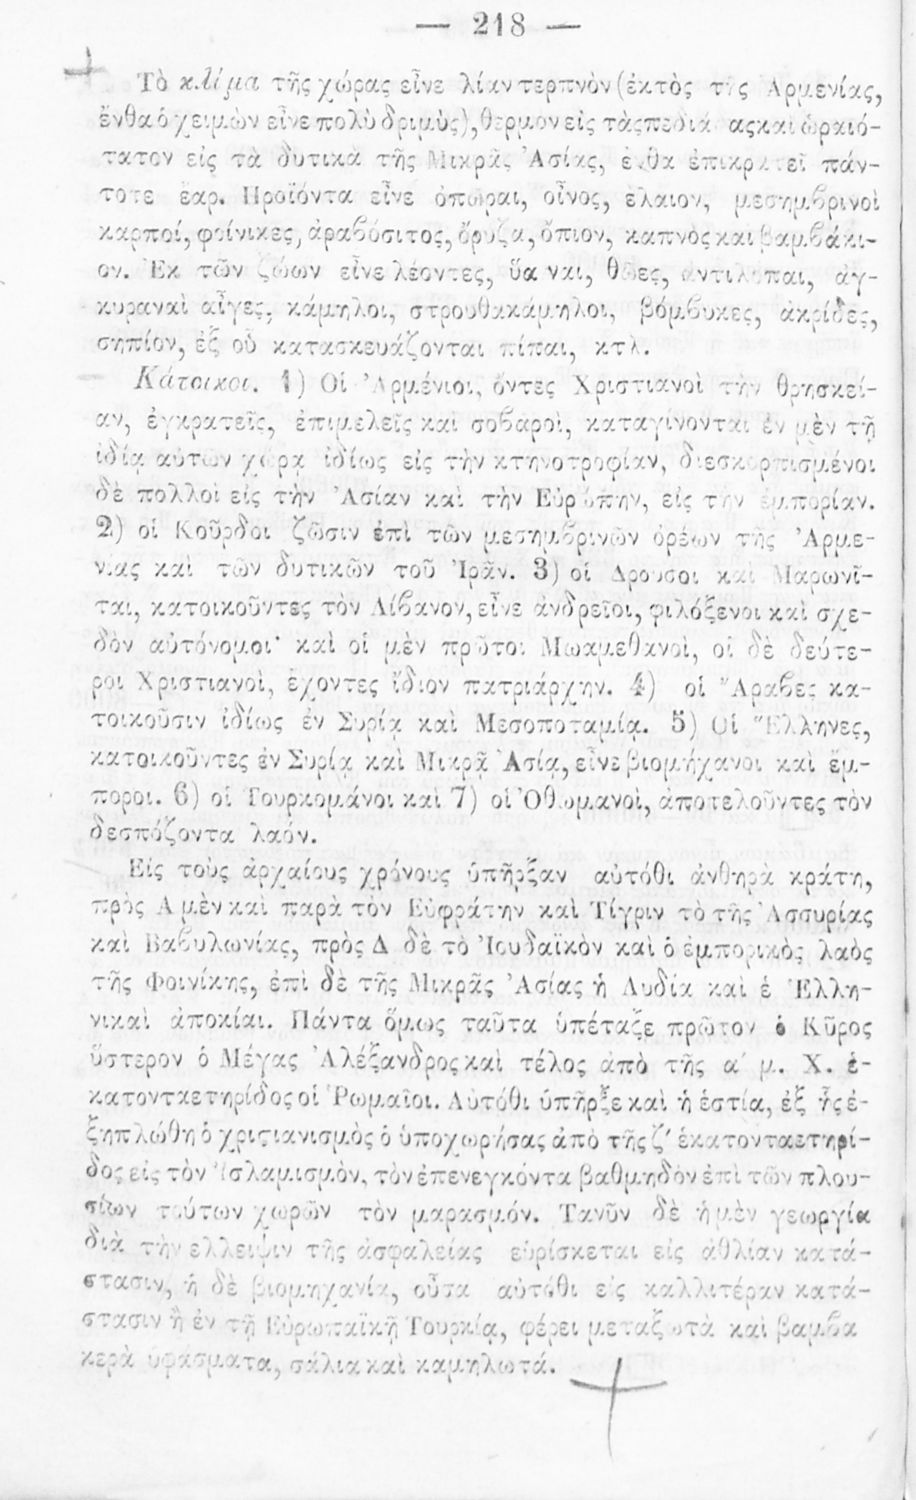 — 218 —
Τὸ κλίμα τῆς χώρας εἶνε λίαν τερπνὸν (ἐκτὸς τῆς Ἀρμενίας,
ἔνθα ὁ χειμὼν εἶνε πολὺ δριμὺς), θερμὸν εἰς τὰς πεδιάδας καὶ ὡραιό-
τατον εἰς τὰ δυτικὰ τῆς Μικρᾶς Ἀσίας, ἔνθα ἐπικρατεῖ πάν-
τοτε ἔαρ. Προϊόντα εἶνε ὀπῶραι, οἶνος, ἔλαιον, μεσημβρινοὶ
καρποί, φοίνικες, ἀραβόσιτος, ὄρυζα, ὄπιον, καπνὸς καὶ βαμβάκι-
ον. Ἐκ τῶν ζώων εἶνε λέοντες, ὕαιναι, θῶες, ἀντιλόπαι, ἀγ-
κυραναὶ αἶγες, κάμηλοι, στρουθακάμηλοι, βόμβυκες, ἀκρίδες,
σηπίον, ἐξ οὗ κατασκευάζονται πίπαι, κτλ.
Κάτοικοι. 1) Οἱ Ἀρμένιοι, ὄντες Χριστιανοὶ τὴν θρησκεί-
αν, ἐγκρατεῖς, ἐπιμελεῖς καὶ σοβαροὶ, καταγίνονται ἐν μὲν τῇ
ἰδίᾳ αὑτῶν χώρᾳ ἰδίως εἰς τὴν κτηνοτροφίαν, διεσκορπισμένοι
δὲ πολλοὶ εἰς τὴν Ἀσίαν καὶ τὴν Εὐρώπην, εἰς τὴν ἐμπορίαν.
2) οἱ Κοῦρδοι ζῶσιν ἐπὶ τῶν μεσημβρινῶν ὀρέων τῆς Ἀρμε-
νίας καὶ τῶν δυτικῶν τοῦ Ἰρᾶν. 3) οἱ Δροῦσοι καὶ Μαρωνῖ-
ται, κατοικοῦντες τὸν Λίβανον, εἶνε ἀνδρεῖοι, φιλόξενοι καὶ σχε-
δὸν αὐτόνομοι· καὶ οἱ μὲν πρῶτοι Μωαμεθανοὶ, οἱ δὲ δεύτε-
ροι Χριστιανοὶ, ἔχοντες ἴδιον πατριάρχην. 4) οἱ Ἄραβες κα-
τοικοῦσιν ἰδίως ἐν Συρίᾳ καὶ Μεσοποταμίᾳ. 5) Οἱ Ἕλληνες,
κατοικοῦντες ἐν Συρίᾳ καὶ Μικρᾷ Ἀσίᾳ, εἶνε βιομήχανοι καὶ ἔμ-
ποροι. 6) οἱ Τουρκομάνοι καὶ 7) οἱ Ὀθωμανοὶ, ἀποτελοῦντες τὸν
δεσπόζοντα λαόν.
Εἰς τοὺς ἀρχαίους χρόνους ὑπῆρξαν αὐτόθι ἀνθηρὰ κράτη,
πρὸς Α μὲν καὶ παρὰ τὸν Εὐφράτην καὶ Τίγριν τὸ τῆς Ἀσσυρίας
καὶ Βαβυλωνίας, πρὸς Δ δὲ τὸ Ἰουδαϊκὸν καὶ ὁ ἐμπορικὸς λαὸς
τῆς Φοινίκης, ἐπὶ δὲ τῆς Μικρᾶς Ἀσίας ἡ Λυδία καὶ ἑ Ἑλλη-
νικαὶ ἀποικίαι. Πάντα ὅμως ταῦτα ὑπέταξε πρῶτον ὁ Κῦρος
ὕστερον ὁ Μέγας Ἀλέξανδρος καὶ τέλος ἀπὸ τῆς α΄ μ. Χ. ἑ-
κατονταετηρίδος οἱ Ῥωμαῖοι. Αὐτόθι ὑπῆρξε καὶ ἡ ἑστία, ἐξ ἧς ἐ-
ξηπλώθη ὁ χριστιανισμὸς ὁ ὑποχωρήσας ἀπὸ τῆς ζ΄ ἑκατονταετηρί-
δος εἰς τὸν Ἰσλαμισμὸν, τὸν ἐπενεγκόντα βαθμηδὸν ἐπὶ τῶν πλου-
σίων τούτων χωρῶν τὸν μαρασμόν. Τανῦν δὲ ἡ μὲν γεωργία
διὰ τὴν ἔλλειψιν τῆς ἀσφαλείας εὑρίσκεται εἰς ἀθλίαν κατά-
στασιν, ἡ δὲ βιομηχανία, οὖσα αὐτόθι εἰς καλλιτέραν κατά-
στασιν ἢ ἐν τῇ Εὐρωπαϊκῇ Τουρκίᾳ, φέρει μεταξωτὰ καὶ βαμβα
κερὰ ὑφάσματα, σάλια καὶ καμηλωτά.